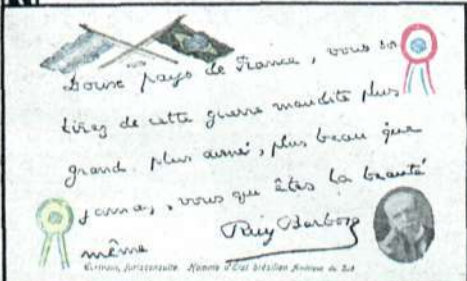 Doux pays de France, vous so
tirez de cette guerre maudite plus
grand, plus aimé, plus beau que
jamais, vous qui êtes la beauté
même
Ruy Barbosa
Écrivain, jurisconsulte. Homme d'État brésilien Amérique du Sud